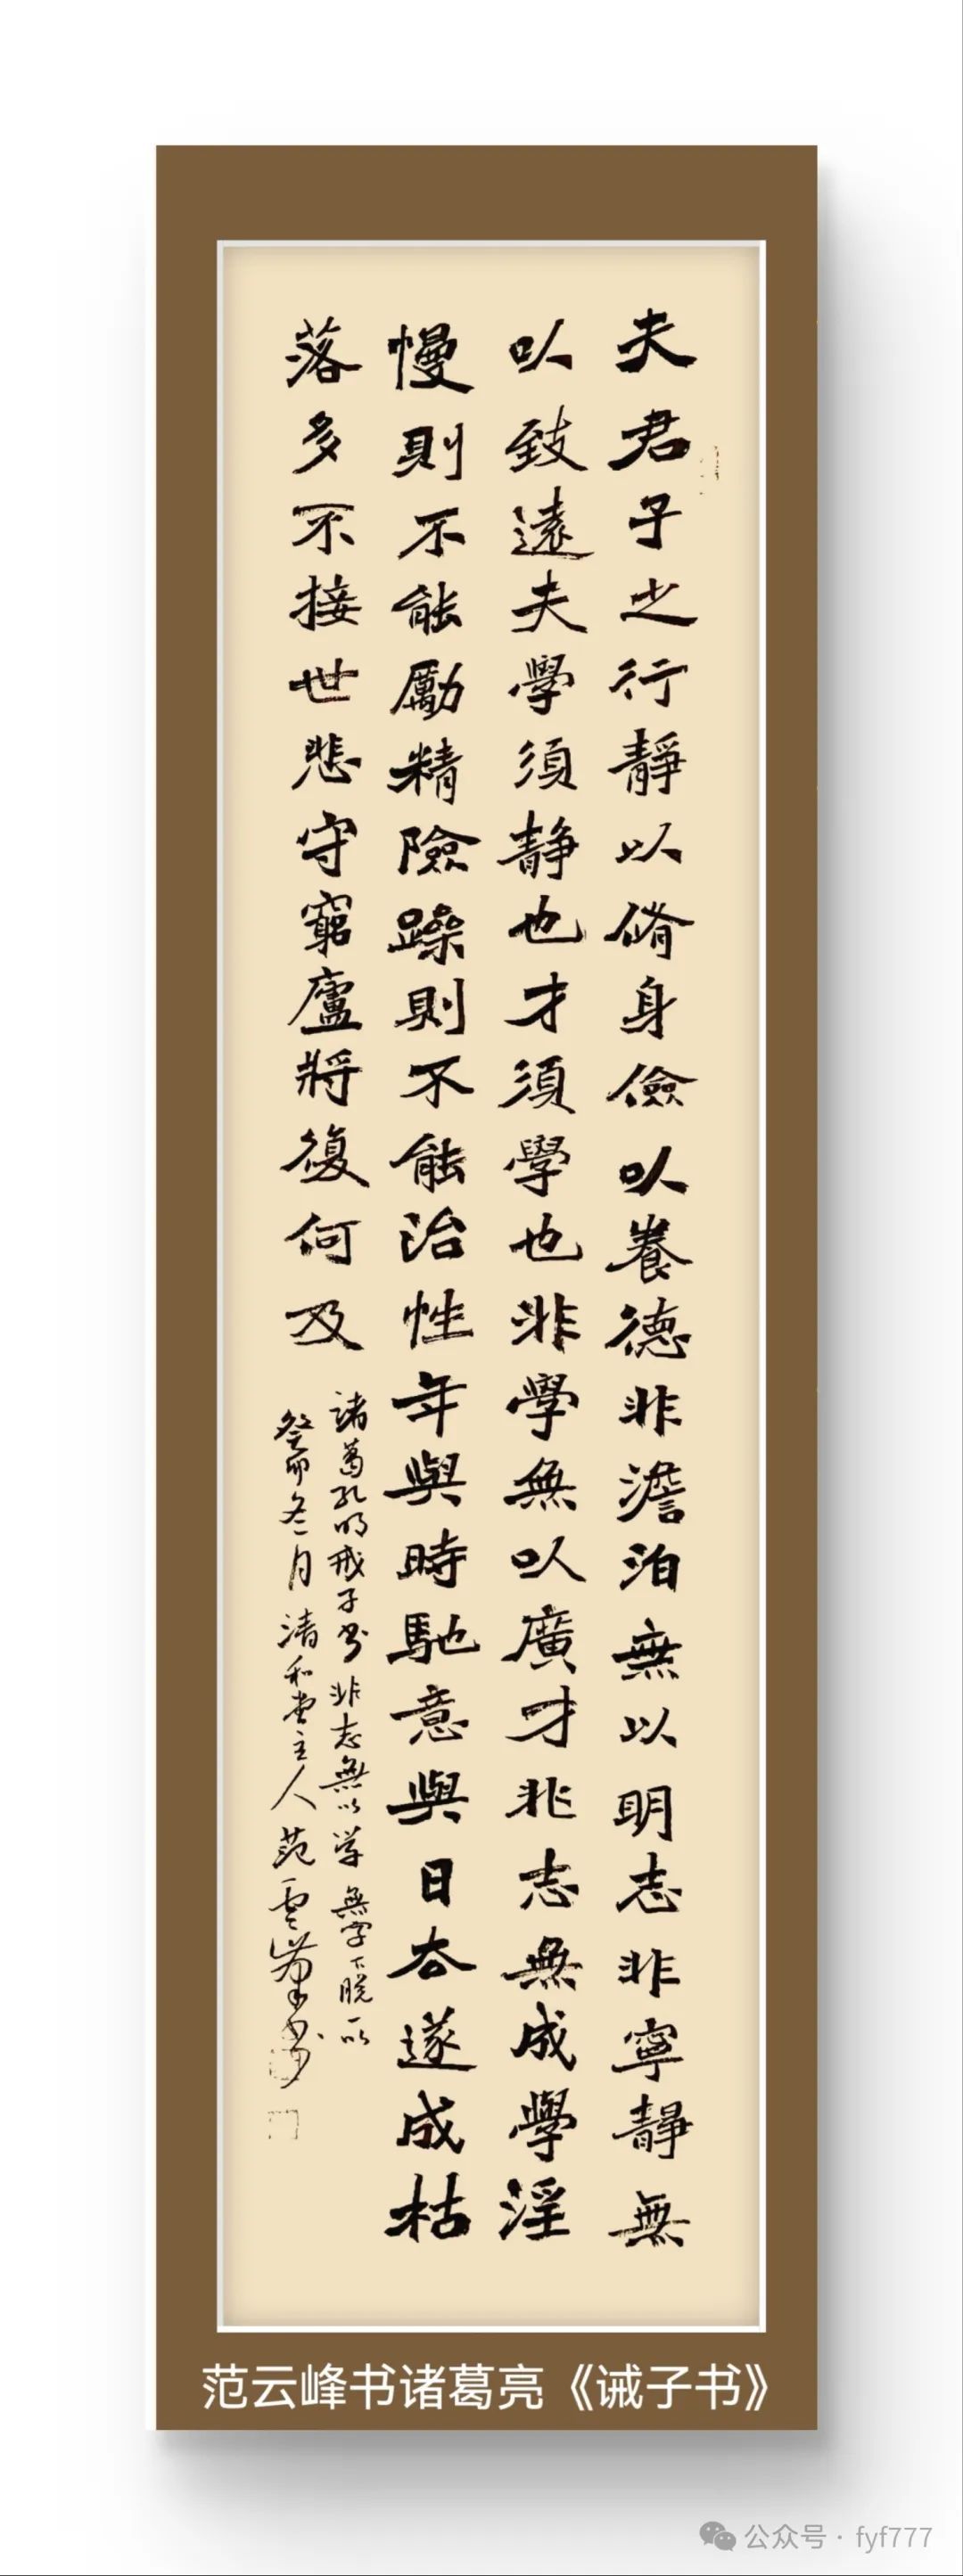 夫君子之行靜以脩身儉以養德非澹泊無以明志非寧靜無
以致遠夫學須静也才須學也非學無以廣才非志無成學淫
慢則不能勵精險躁則不能治性年與時馳意與日去遂成枯
落多不接世悲守窮廬將復何及
諸葛孔明戒子书 非志無以学 無字下脱一以
癸卯冬月清和堂主人范雲峯书
范云峰书诸葛亮《诫子书》
公众号·fyf777